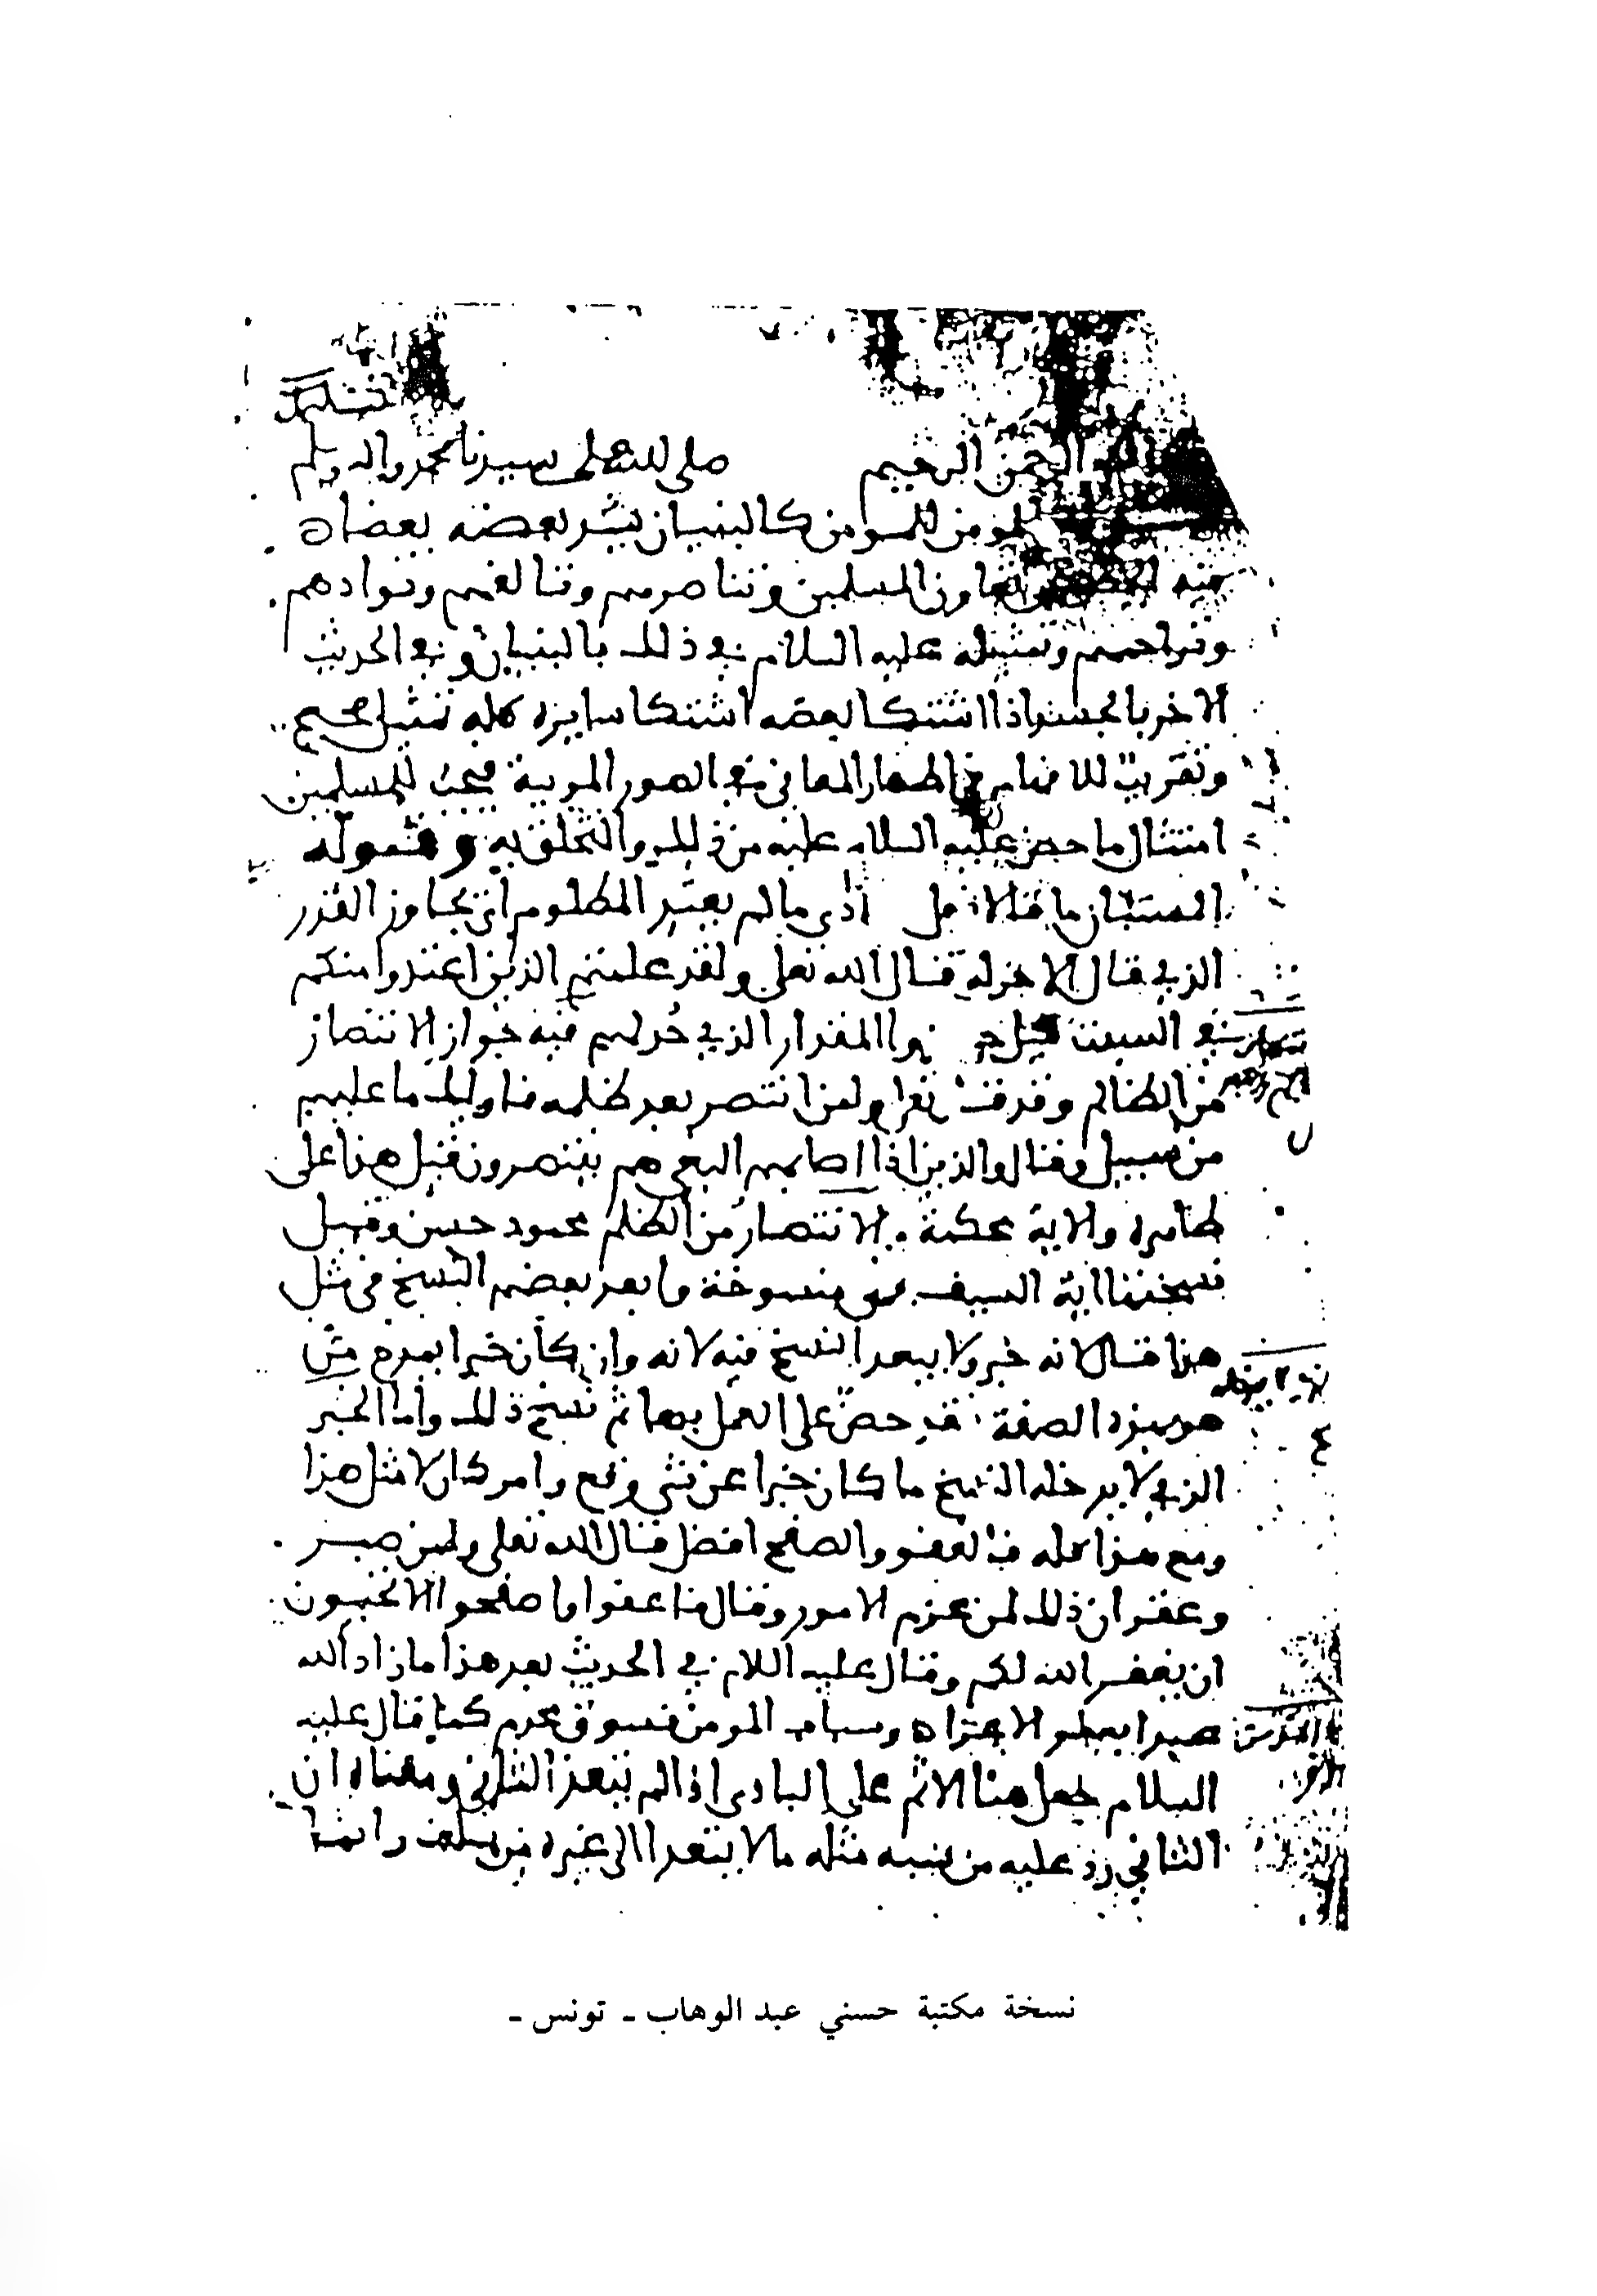 الرحمن الرحيم صلى الله على سيدنا محمد واله وسلم
المومن للمومن كالبنيان يشد بعضه بعضا
فيه الحض على تعاون المسلمين وتناصرهم وتالفهم وتوادهم
وتراحمهم وتمثيله عليه السلام في ذلك بالبنيان وفي الحديث
الاخر بالجسد اذا اشتكا بعضه اشتكا سايره كله تمثيل صحيح
وتقريب للافهام في اظهار المعاني في الصور المرية فيجب للمسلمين
امتثال ما حض عليه السلام عليه من ذلك والتخلق به وقوله
المستبان ما قالا فعلى اذى ما لم يعتد المظلوم اي يجاوز القدر
الذي قال الاخر له قال الله تعلى ولقد علمتم الذين اعتدوا منكم
في السبت المقدار الذي حد لهم فيه جواز الانتصار
من الظالم وقد قال تعلى ولمن انتصر بعد ظلمه فاوليك ما عليهم
من سبيل وقال والذين اذا اصابهم البغي هم ينتصرون قيل هذا على
ظاهره والاية محكمة والانتصار من الظلم محمود حسن وقيل
نسختها اية السيف فهي منسوخة وابعد بعضهم النسخ في مثل
هذا قال لانه خبر ولا يبعد النسخ فيه لانه وان كان خبرا بمدح من
هو بهذه الصفة فقد حض على العمل بها ثم نسخ ذلك واما الخبر
الذي لا يدخله النسخ ما كان خبرا عن شي وقع وامر كان لا مثل هذا
ومع هذا كله فالعفو والصفح افضل قال الله تعلى ولمن صبر
وغفر ان ذلك لمن عزم الامور وقال فاعفوا واصفحوا الا تحبون
ان يغفر الله لكم وقال عليه السلام في الحديث بعد هذا ما زاد الله
عبدا بعفو الا عزا وسباب المومن فسوق محرم كما قال عليه
السلام فجعل هنا الاثم على البادي اذا لم يتعد الثاني ومعناه ان
الثاني رد عليه من سبه مثله ما لا يتعدا الى غيره من سلف وانما
نسخة مكتبة حسني عبد الوهاب - تونس -